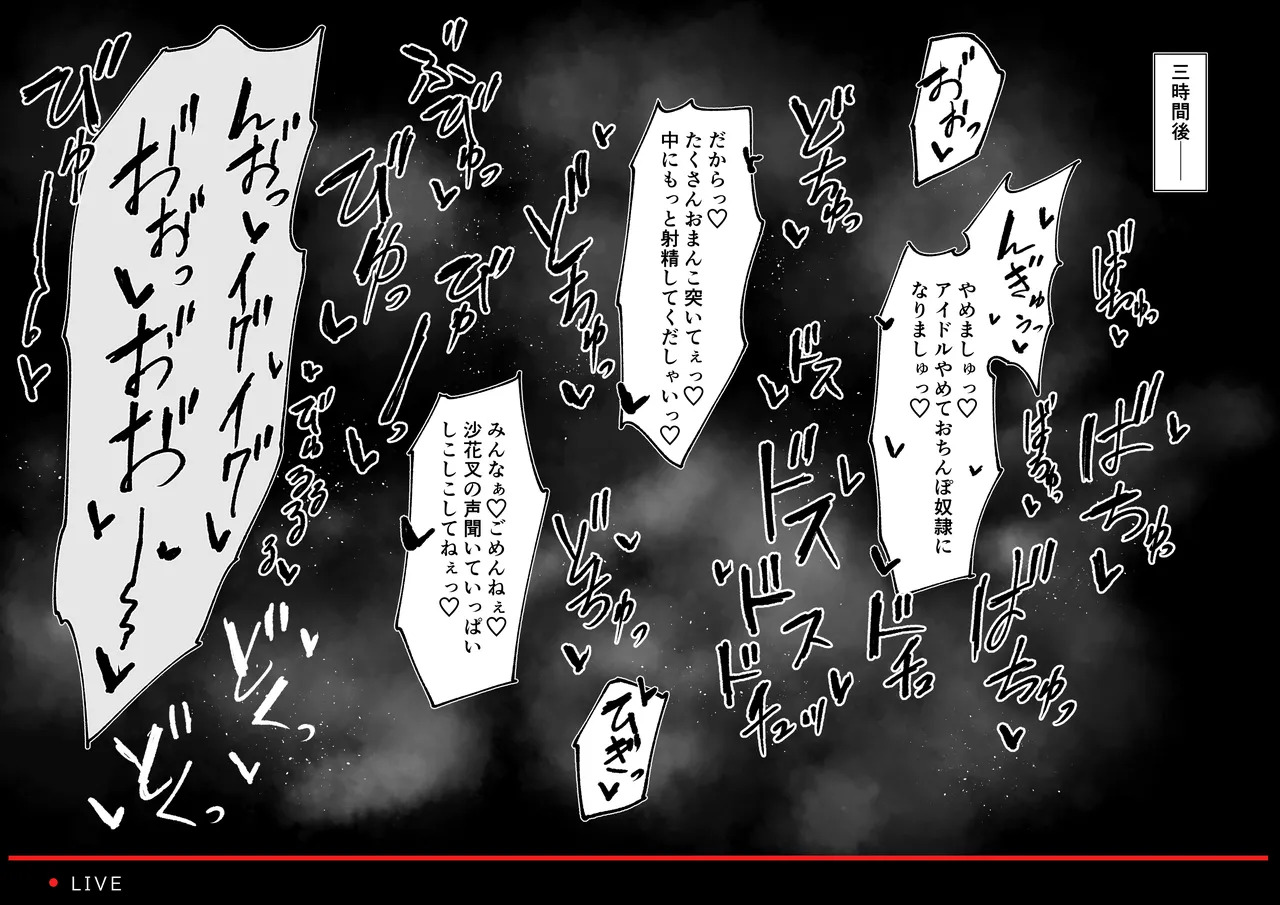 三時間後――
おおっ♥
んぎゅうっ♥
やめましゅっ♡
アイドルやめておちんぽ奴隷に
なりましゅっ♡
ばちゅっ♥
ばちゅっ♥
ばちゅっ♥
ばちゅっ♥
どちゅっ♥
ドスドスドスドチュッ♥
ドチュ
だからっ♡
たくさんおまんこ突いてぇっ♡
中にもっと射精してくだしゃいっ♡
どちゅっ♥
どちゅっ♥
ひぎっ♥
みんなぁ♡ごめんねぇ♡
沙花叉の声聞いていっぱい
しこしこしてねぇっ♡
ぶびゅっ♥
びゅっ♥
びゅーっ♥
びゅるるるる♥
んおっ♥イグイグ♥
おおっ♥おおお〜〜♥
びゅーーっ♥
どくっ♥
どくっ♥
LIVE